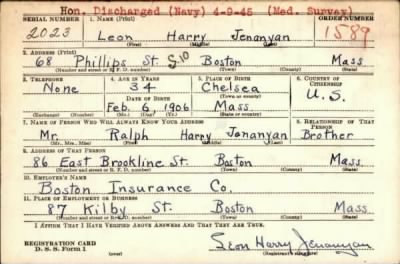 Hon. Discharged (Navy) 4-9-45 (Med. Survey)
SERIAL NUMBER 1. NAME (Print) ORDER NUMBER
2023 Leon Harry Jenanyan 1589
(First) (Middle) (Last)
2. ADDRESS (Print)
68 Phillips St. S,10 Boston Mass
(Number and street or R. F. D. number) (Town) (County) (State)
3. TELEPHONE 4. AGE IN YEARS 5. PLACE OF BIRTH 6. COUNTRY OF CITIZENSHIP
None 34 Chelsea U. S.
DATE OF BIRTH (Town or county)
Feb. 6, 1906 Mass.
(Exchange) (Number) (Mo.) (Day) (Yr.) (State or country)
7. NAME OF PERSON WHO WILL ALWAYS KNOW YOUR ADDRESS 8. RELATIONSHIP OF THAT PERSON
Mr. Ralph Harry Jenanyan Brother
(Mr., Mrs., Miss) (First) (Middle) (Last)
9. ADDRESS OF THAT PERSON
86 East Brookline St. Boston Mass.
(Number and street or R. F. D. number) (Town) (County) (State)
10. EMPLOYER'S NAME
Boston Insurance Co.
11. PLACE OF EMPLOYMENT OR BUSINESS
87 Kilby St. Boston Mass
(Number and street or R. F. D. number) (Town) (County) (State)
I AFFIRM THAT I HAVE VERIFIED ABOVE ANSWERS AND THAT THEY ARE TRUE.
REGISTRATION CARD
D. S. S. Form 1
Leon Harry Jenanyan
(Registrant's signature)